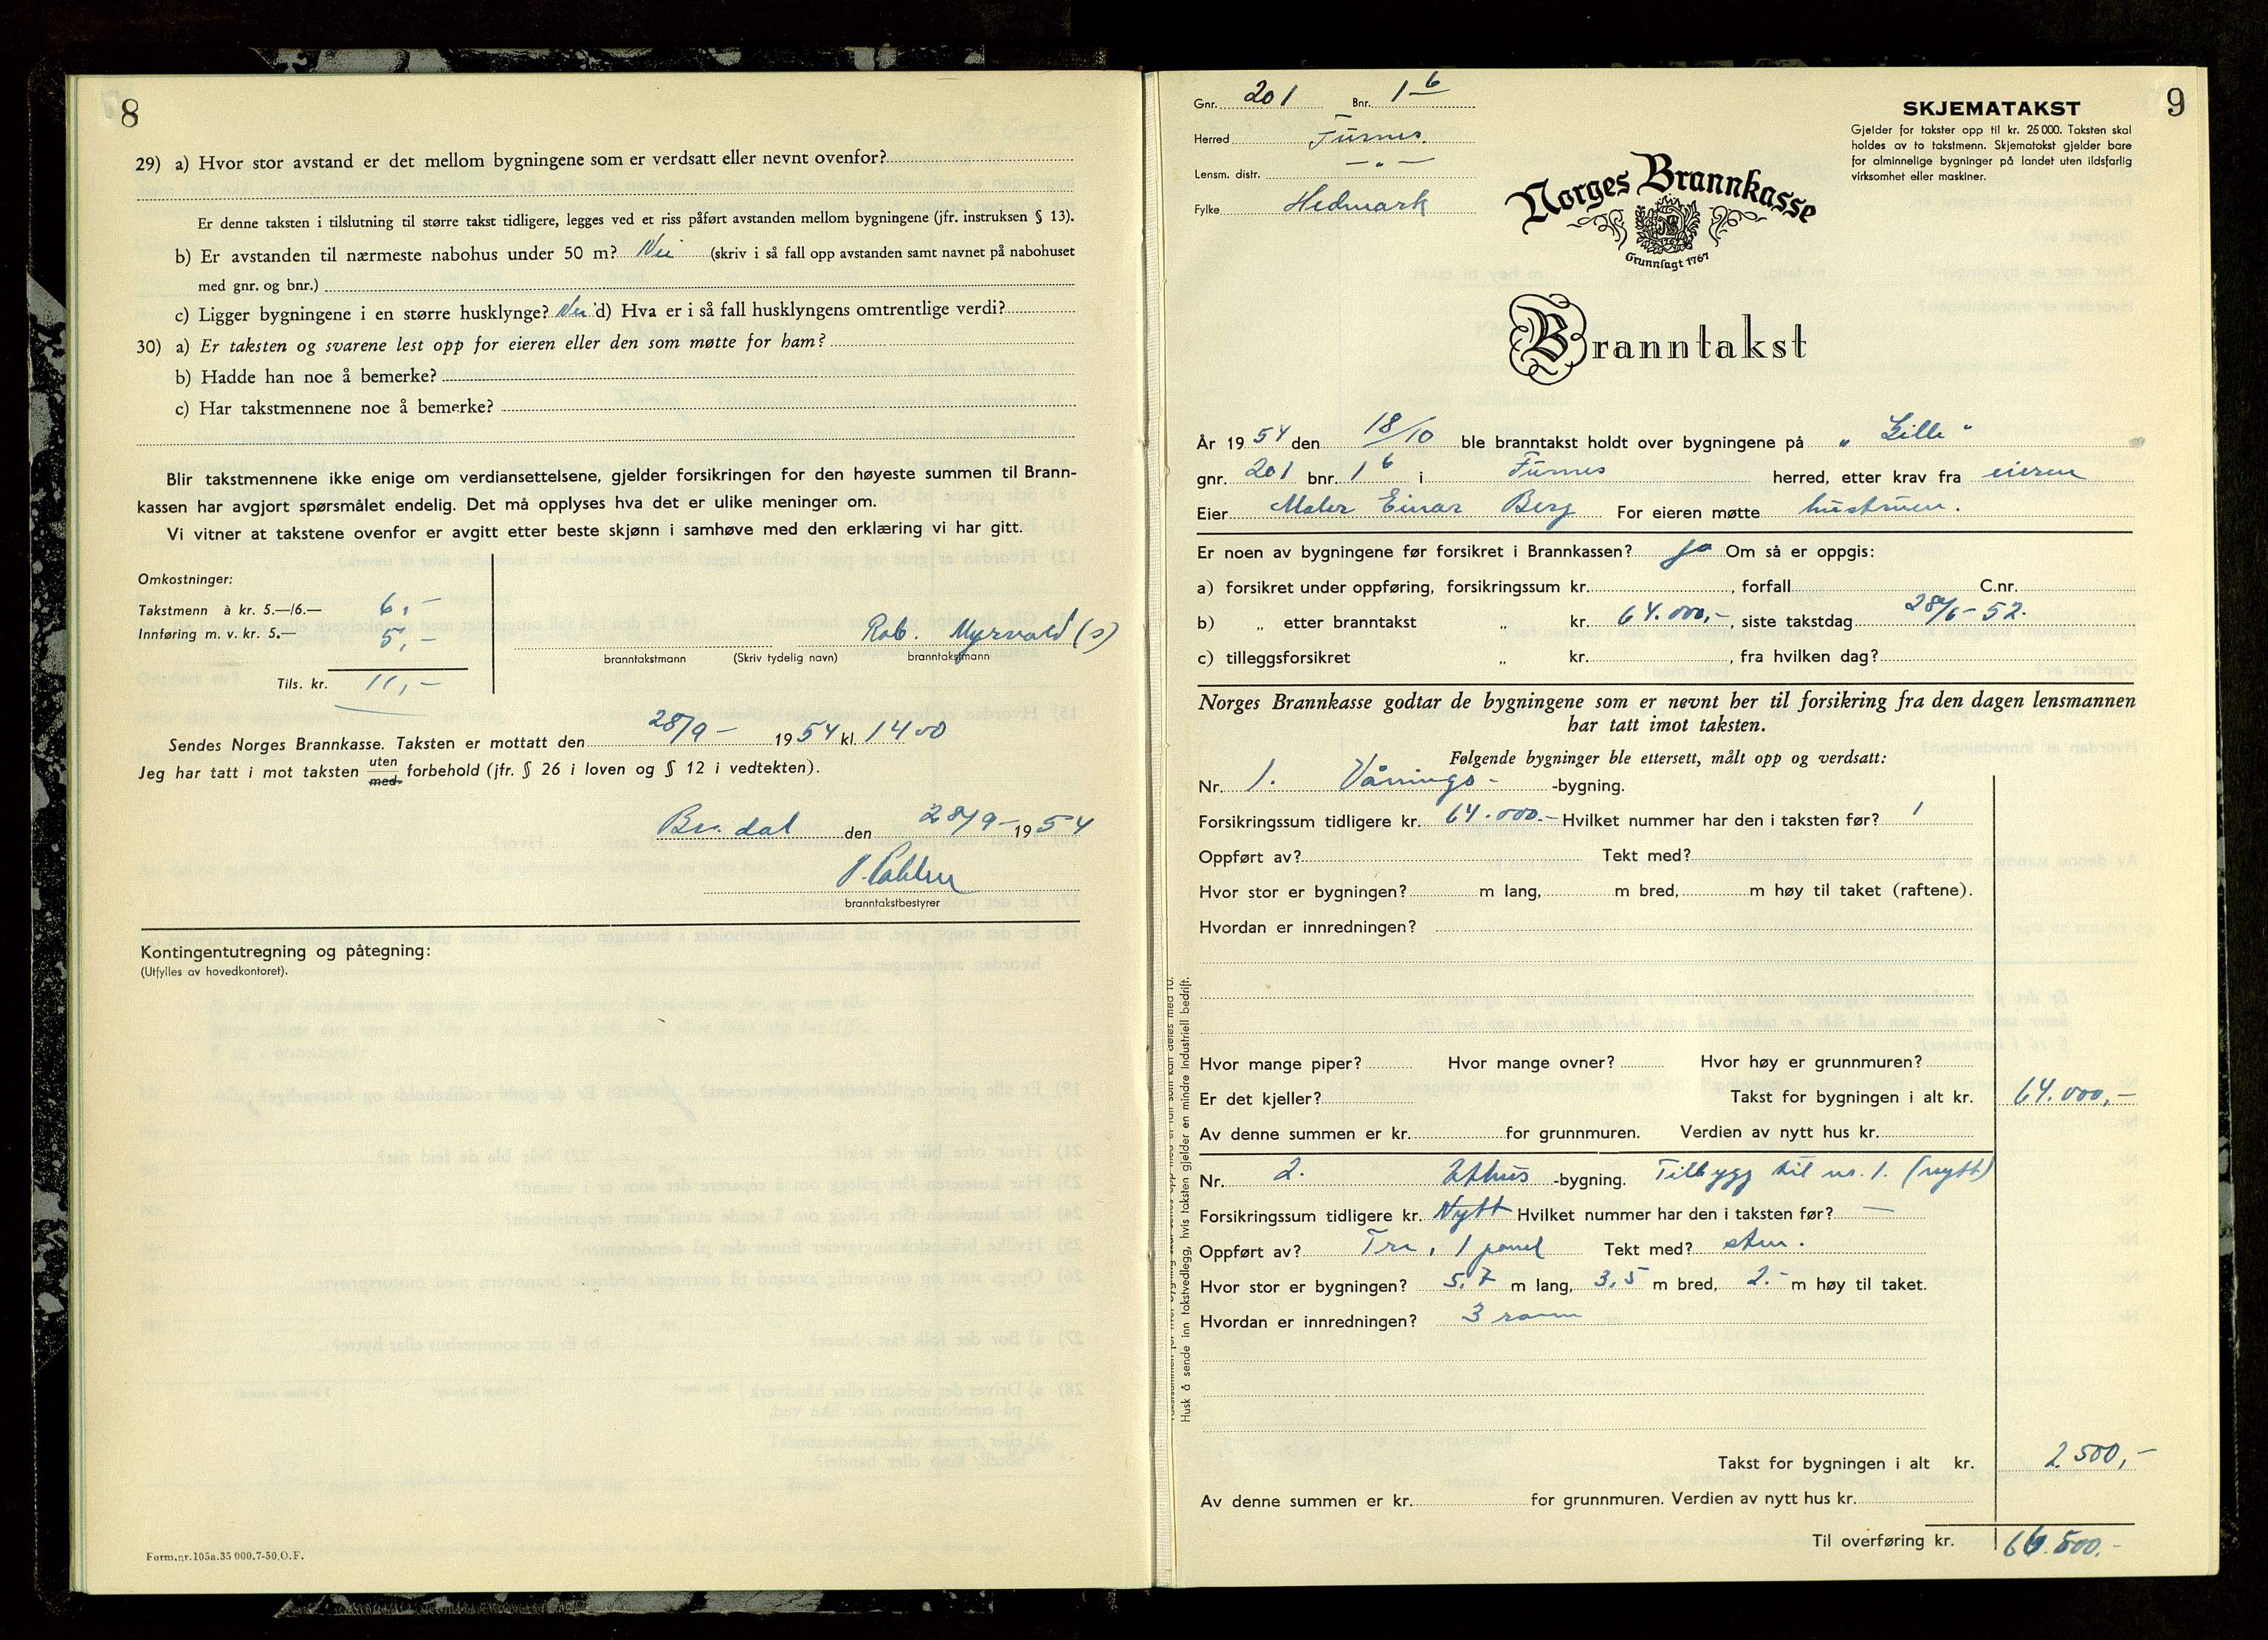 8
29) a) Hvor stor avstand er det mellom bygningene som er verdsatt eller nevnt ovenfor?
Er denne taksten i tilslutning til større takst tidligere, legges ved et riss påført avstanden mellom bygningene (jfr. instruksen § 13).
b) Er avstanden til nærmeste nabohus under 50 m? Nei (skriv i så fall opp avstanden samt navnet på nabohuset
med gnr. og bnr.)
c) Ligger bygningene i en større husklynge? Nei d) Hva er i så fall husklyngens omtrentlige verdi?
30) a) Er taksten og svarene lest opp for eieren eller den som møtte for ham?
b) Hadde han noe å bemerke?
c) Har takstmennene noe å bemerke?
Blir takstmennene ikke enige om verdiansettelsene, gjelder forsikringen for den høyeste summen til Brann-
kassen har avgjort spørsmålet endelig. Det må opplyses hva det er ulike meninger om.
Vi vitner at takstene ovenfor er avgitt etter beste skjønn i samhøve med den erklæring vi har gitt.
Omkostninger:
Takstmenn à kr. 5.—/6.— 6,-
Innføring m. v. kr. 5.— 5,-
Rob. Myrvold (s)
branntakstmann (Skriv tydelig navn) branntakstmann
Tils. kr. 11,-
Sendes Norges Brannkasse. Taksten er mottatt den 28/9- 1954 kl. 1400
Jeg har tatt i mot taksten uten med forbehold (jfr. § 26 i loven og § 12 i vedtekten).
den 28/9- 1954
branntakstbestyrer
Kontingentutregning og påtegning:
(Utfylles av hovedkontoret).
Form.nr.105a.35 000.7-50.O.F.
9
Gnr. 201 Bnr. 1 6
Herred Furnes.
Lensm. distr. — " —
Fylke Hedmark
SKJEMATAKST
Gjelder for takster opp til kr. 25 000. Taksten skal
holdes av to takstmenn. Skjematakst gjelder bare
for alminnelige bygninger på landet uten ildsfarlig
virksomhet eller maskiner.
Norges Brannkasse
Grunnlagt 1767
Branntakst
År 1954 den 18/10 ble branntakst holdt over bygningene på " Lille "
gnr. 201 bnr. 1 6 i Furnes herred, etter krav fra eieren
Eier Maler Einar Berg For eieren møtte hustruen.
Er noen av bygningene før forsikret i Brannkassen? Ja Om så er oppgis:
a) forsikret under oppføring, forsikringssum kr. , forfall C.nr.
b) „ etter branntakst „ kr. 64.000,- , siste takstdag 28/5-52.
c) tilleggsforsikret „ kr. , fra hvilken dag?
Norges Brannkasse godtar de bygningene som er nevnt her til forsikring fra den dagen lensmannen
har tatt imot taksten.
Følgende bygninger ble ettersett, målt opp og verdsatt:
Nr. 1. Vånings- -bygning.
Forsikringssum tidligere kr. 64.000.- Hvilket nummer har den i taksten før? 1
Oppført av? Tekt med?
Hvor stor er bygningen? m lang, m bred, m høy til taket (raftene).
Hvordan er innredningen?
Hvor mange piper? Hvor mange ovner? Hvor høy er grunnmuren?
Er det kjeller? Takst for bygningen i alt kr. 64.000,-
Av denne summen er kr. for grunnmuren. Verdien av nytt hus kr.
Nr. 2. Uthus -bygning. Tilbygg til nr. 1. (nytt)
Forsikringssum tidligere kr. Nytt Hvilket nummer har den i taksten før? —
Oppført av? Tre, 1 panel Tekt med? sten.
Hvor stor er bygningen? 5,7 m lang, 3,5 m bred, 2.- m høy til taket.
Hvordan er innredningen? 3 rom
Takst for bygningen i alt kr. 2.500,-
Av denne summen er kr. for grunnmuren. Verdien av nytt hus kr.
Til overføring kr. 66.500.-
Husk å sende inn takstvedlegg, hvis taksten gjelder en mindre industriell bedrift.